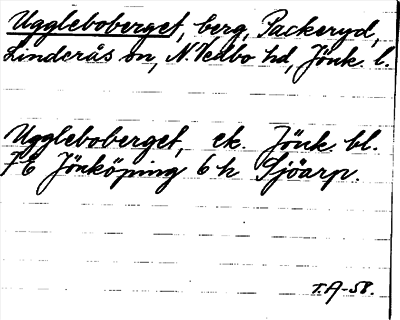 Uggleboberget, berg, Packeryd,
Linderås sn, N. Vedbo hd, Jönk. l.
Uggleboberget, ek. Jönk. bl.
7E Jönköping 6h Sjöarp.
T.A-58.